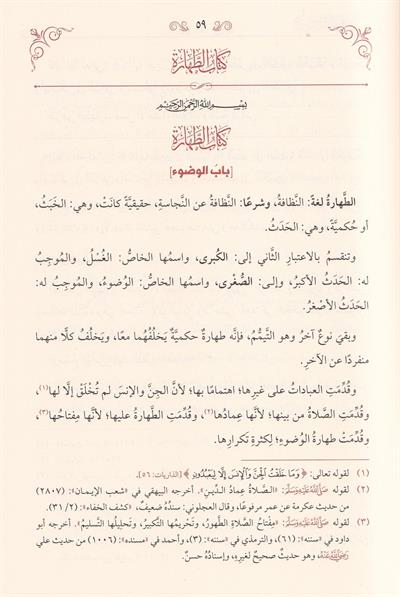 ٥٩
كتاب الطهارة
بسم الله الرحمن الرحيم
كتاب الطهارة
[باب الوضوء]
الطَّهارةُ لغةً: النَّظافةُ، وشرعًا: النَّظافةُ عن النَّجاسةِ، حقيقيَّةً كانَتْ، وهي: الخَبَثُ،
أو حُكميَّةً، وهي: الحَدَثُ.
وتنقسمُ بالاعتبارِ الثَّاني إلى: الكُبرى، واسمُها الخاصُّ: الغُسْلُ، والمُوجِبُ
له: الحَدَثُ الأكبرُ، وإلى: الصُّغْرى، واسمُها الخاصُّ: الوُضوءُ، والمُوجِبُ له:
الحَدَثُ الأصْغرُ.
وبقيَ نوعٌ آخرُ وهو التَّيمُّمُ، فإنَّه طهارةٌ حكميَّةٌ يَخلُفُهُما معًا، ويَخلُفُ كلًّا منهما
منفردًا عن الآخرِ.
وقُدِّمَتِ العباداتُ على غيرِها؛ اهتمامًا بها؛ لأنَّ الجِنَّ والإنسَ لم تُخْلَقْ إلَّا لها(١)،
وقُدِّمَتِ الصَّلاةُ من بينِها؛ لأنَّها عِمادُها(٢)، وقُدِّمَتِ الطَّهارةُ عليها؛ لأنَّها مِفتاحُها(٣)،
وقُدِّمَتْ طهارةُ الوُضوءِ؛ لكثرةِ تَكرارِها.
(١) لقوله تعالى: ﴿وَمَا خَلَقْتُ ٱلْجِنَّ وَٱلْإِنسَ إِلَّا لِيَعْبُدُونِ﴾ [الذاريات: ٥٦].
(٢) لقوله صلى الله عليه وسلم: «الصَّلاةُ عِمادُ الدِّينِ». أخرجه البيهقي في «شعب الإيمان»: (٢٨٠٧)
من حديث عكرمة عن عمر مرفوعًا، وقال العجلوني: سندُهُ ضعيفٌ، «كشف الخفاء»: (٣١/٢).
(٣) لقوله صلى الله عليه وسلم: «مِفتاحُ الصَّلاةِ الطَّهورُ، وتَحْريمُها التَّكبيرُ، وتَحليلُها التَّسليمُ». أخرجه أبو
داود في «سننه»: (٦١)، والترمذي في «سننه»: (٣)، وأحمد في «مسنده»: (١٠٠٦) من حديث علي
رضي الله عنه، وهو حديثٌ صحيحٌ لغيرِهِ، وإسنادُهُ حسنٌ.